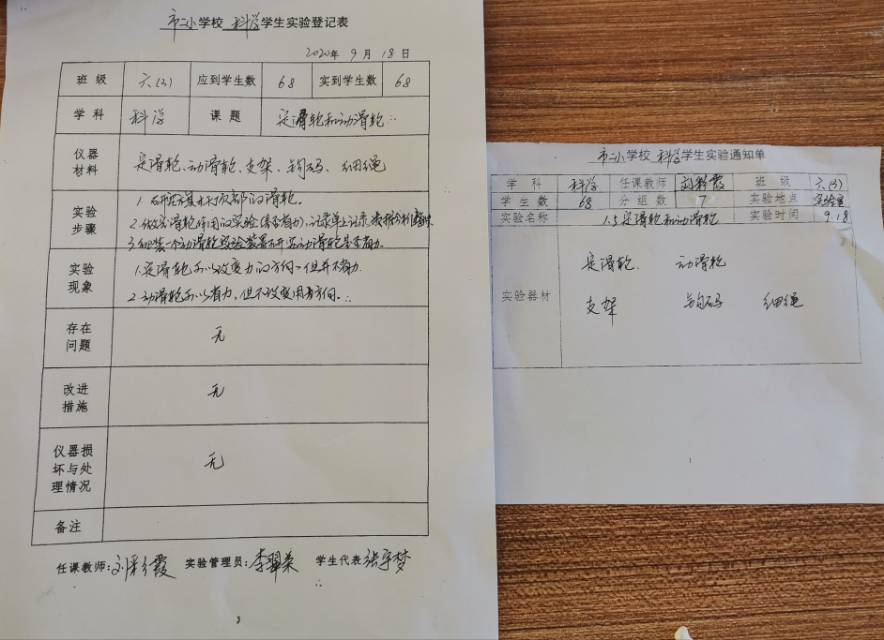 市二小学校 科学学生实验登记表
2020年 9 月 18 日
班级 六.(3) 应到学生数 68 实到学生数 68
学科 科学 课题 定滑轮和动滑轮
仪器材料 定滑轮、动滑轮、支架、钩码、细绳
实验步骤 1.研究旗杆顶部的滑轮。
2.做定滑轮作用的实验(是否省力),记录单上记录,
3.组装一个动滑轮实验装置研究动滑轮是否省力。
实验现象 1.定滑轮可以改变力的方向,但并不省力.
2.动滑轮可以省力,但不改变用力方向.
存在问题 无
改进措施 无
仪器损坏与处理情况 无
备注
任课教师:刘彩霞 实验管理员:李翠荣 学生代表 张宇梦
市二小学校 科学学生实验通知单
学科 科学 任课教师 刘彩霞 班级 六.(3)
学生数 68 分组数 7 实验地点 实验室
实验名称 1.5定滑轮和动滑轮 实验时间 9.18
实验器材 定滑轮. 动滑轮
支架 钩码 细绳